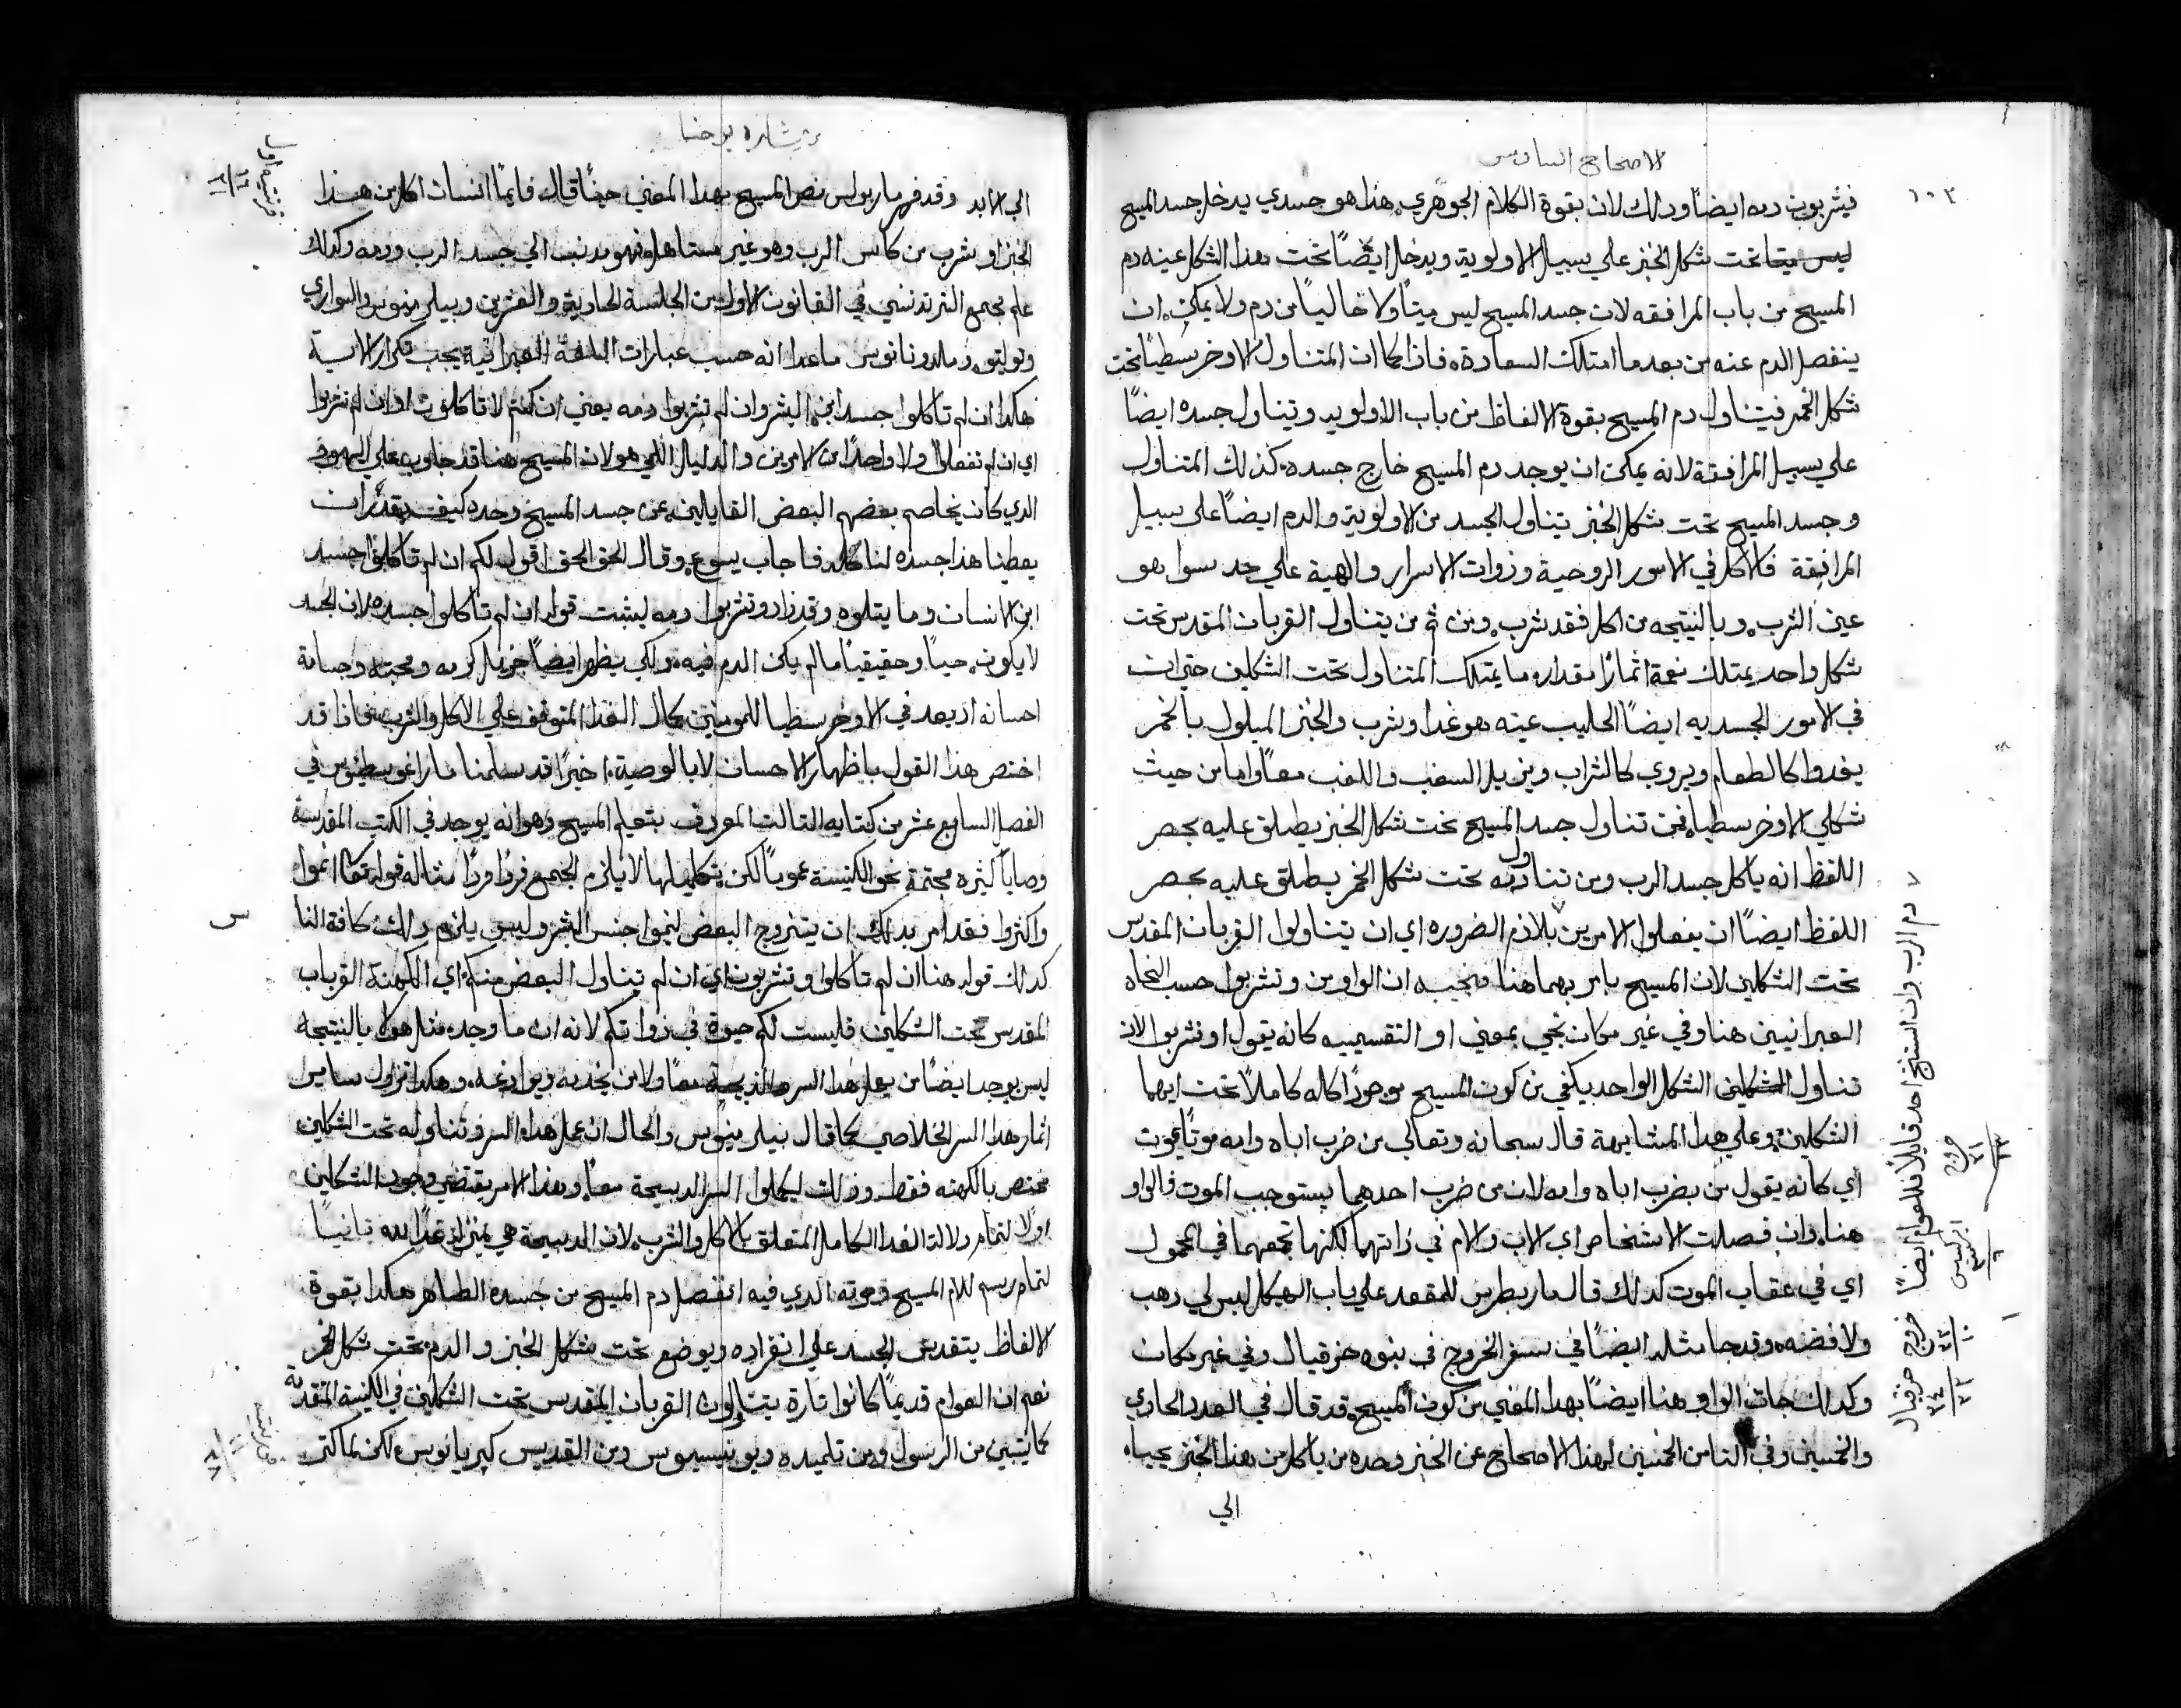 الاصحاح السادس
١٠٣
فيشربون دمه ايضًا وذلك لان بقوة الكلام الجوهري هذا هو جسدي يدخل جسد المسيح
ليس ميتا تحت شكل الخبز علي سبيل الاولوية ويدخل ايضًا تحت هذا الشكل عينه دم
المسيح من باب المرافقه لان جسد المسيح ليس ميتًا ولا خاليًا من دم ولا يمكن ان
ينفصل الدم عنه من بعد ما امتلك السعادة فاذا كما ان المتناول الاوخرسطيا تحت
شكل الخمر فيتناول دم المسيح بقوة الالفاظ من باب الاولويه ويتناول جسده ايضًا
علي سبيل المرافقة لانه يمكن ان يوجد دم المسيح خارج جسده كذلك المتناول
وجسد المسيح تحت شكل الخبز يتناول الجسد من الاولوية والدم ايضًا علي سبيل
المرافقة فالاكل في الامور الروحية وذوات الاسرار والهية علي حد سوا هو
عين الشرب وبالنتيجه من اكل فقد شرب ومن ثم من يتناول القربان المقدس تحت
شكل واحد يمتلك نعمة اثمارًا مقدار ما يمتلك المتناول تحت الشكلين حتي ان
في الامور الجسديه ايضًا الحليب عينه هو غدا وشرب والخبز المبلول بالخمر
يغدوا كالطعام ويروي كالشراب ويزيل السغب واللغب معًا واما من حيث
شكلي الاوخرسطيا فمن تناول جسد المسيح تحت شكل الخبز يطلق عليه بحصر
اللفظ انه ياكل جسد الرب ومن تناول دمه تحت شكل الخمر يطلق عليه بحصر
اللفظ ايضًا ان يفعلوا الامرين بلازم الضروره اي ان يتناولوا القربان المقدس
تحت الشكلين لان المسيح يامر بهما هنا فنجيب ان الواو من وتشربوا حسب النحاه
العبرانيين هنا وفي غير مكان تجي بمعني او التقسيميه كانه يقول او تشربوا لان
تناول الشكلين الشكل الواحد يكفي من كون المسيح موجودًا كاله كاملاً تحت ايهما
الشكلين وعلي هذا المشابهة قال سبحانه وتعالي من ضرب اباه وامه موتًا يموت
اي كانه يقول من يضرب اباه وامه لان من ضرب احدهما يستوجب الموت فالواو
هنا وان فصلت الاشخاص اي الاب والام في ذاتهما لكنها تجمعهما في المحمول
اي في عقاب الموت كذلك قال مار بطرس للمقعد علي باب الهيكل ليس لي دهب
ولا فضه وقد جا مثله ايضًا في سفر الخروج في نبوه حزقيال وفي غير مكان
وكذلك جات الواو هنا ايضًا بهدا المعني من كون المسيح قد قال في العدد الحادي
والخمسين وفي الثامن الخمسين لهذا الاصحاح عن الخبز وحده من ياكل من هذا الخبز يحيا
الي
دم الرب وان استنتج احد قايلاً فللعوام ايضًا
خروج
ابركسيس
خروج
حزقيال
بشاره يوحنا
الي الابد وقد فهم مار بولس نص المسيح بهدا المعني حيثًا قال فايما انسان اكل من هذا
الخبز او شرب من كاس الرب وهو غير مستاهل فهو مدنب الي جسد الرب ودمه وكدلك
علم مجمع التريدنتيني في القانون الاول من الجلسة الحادية والعشرين
ما عدا انه حسب عبارات اللغة العبرانية يجب تكرار الاية
هكدا ان لم تاكلوا جسد ابن البشر وان لم تشربوا دمه يعني ان كنتم لا تاكلون او ان لم تشربوا
اي ان لم تفعلوا ولا واحدًا من الامرين والدليل اللي هو لان المسيح هنا قد جاوب علي اليهود
الدي كان يخاصم بعضهم البعض القايلين عن جسد المسيح وحده كيف يقدر ان
يعطينا هدا جسده لناكله فاجاب يسوع وقال الحق الحق اقول لكم ان لم تاكلوا جسد
ابن الانسان وما يتلوه وقد زاد وتشربوا دمه ليثبت قوله ان لم تاكلوا جسده لان الجسد
لا يكون حيًا وحقيقيًا ما لم يكن الدم فيه ولكي يظهر ايضًا جزيل كرمه ومحبته وجسامة
احسانه اد يعد في الاوخرسطيا للمومنين كمال الغدا المتوقف علي الاكل والشرب فاذا قد
اختص هذا القول باظهار الاحسان لا بالوصية اخيرًا قد سلمنا
الفصل السابع عشر من كتابه التالت المعروف بتعليم المسيح وهو انه يوجد في الكتب المقدسة
وصايا كثيره محتمة نحو الكنيسة عمومًا لكن تكميلها لا يلزم الجميع فردًا فردًا مثاله قوله تعالي انموا
واكثروا فقد امر بدلك ان يتزوج البعض لنموا جنس البشر وليس يلزم دلك كافة الناس
كدلك قوله هنا ان لم تاكلوا وتشربون اي ان لم يتناول البعض منكم اي الكهنة القربان
المقدس تحت الشكلين فليست لكم حيوة في ذواتكم لانه ان ما وجد مثل هولا بالنتيجة
ليس يوجد ايضًا من يعمل هدا السر والدبيحة معًا ولا من يخدمه ويوازعه وهكدا تزول ساير
اثمار هدا السر الخلاصي كما قال والحال ان عمل هدا السر وتناوله تحت الشكلين
مختص بالكهنه فقط ودلك ليكملوا السر الدبيحة معًا وهدا الامر يقتضي وجود الشكلين
اولاً لتمام دلالة الغدا الكامل المتعلق بالاكل والشرب لان الدبيحة هي بمنزلة غدا لله ثانيًا
لتمام رسم الام المسيح وموته الدي فيه انفصل دم المسيح من جسده الطاهر هكدا بقوة
الالفاظ يتقدس الجسد علي انفراده ويوضع تحت شكل الخبز والدم تحت شكل الخمر
نعم ان العوام قديمًا كانوا تارة يتناولون القربان المقدس تحت الشكلين في الكنيسة المقدسة
كما يتبين من الرسول ومن تلميده ديونيسيوس ومن القديس كبريانوس لكن
قرنتيه اولي